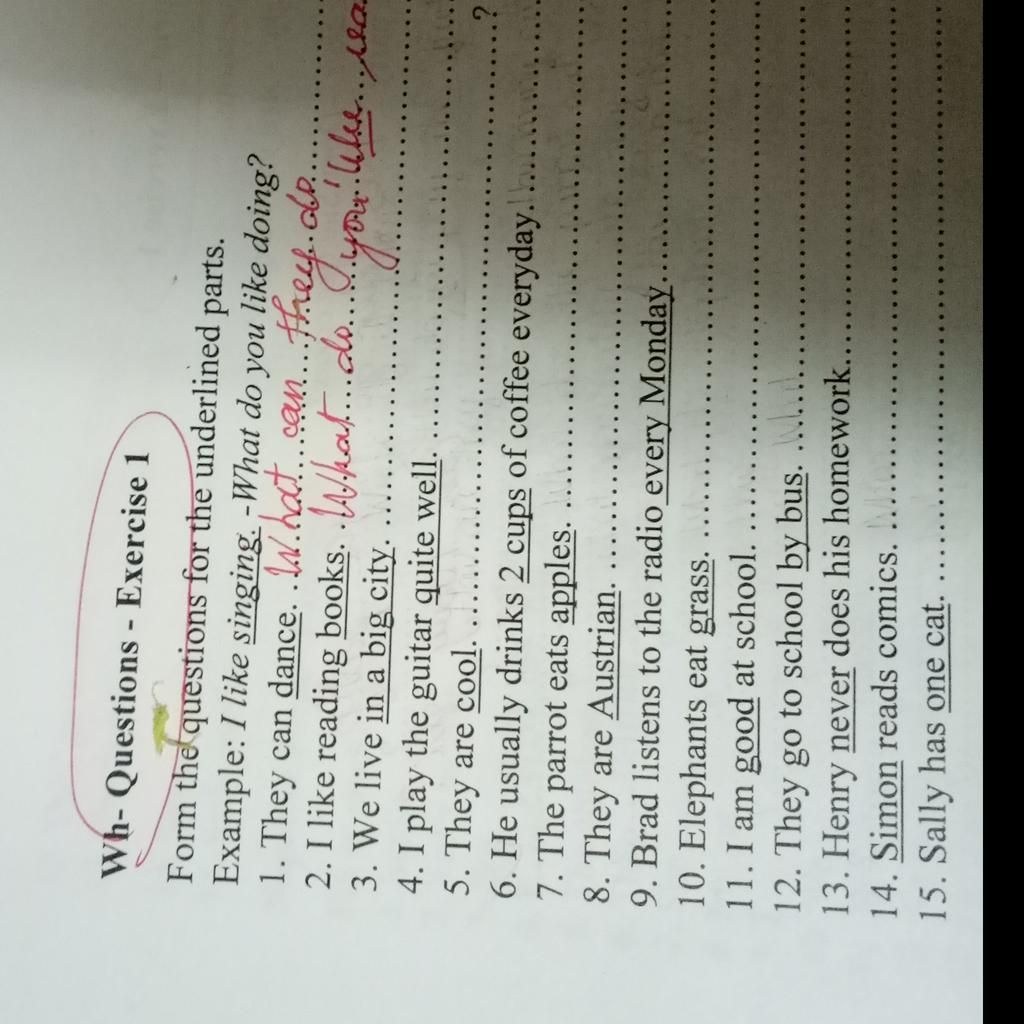 Wh- Questions - Exercise 1
Form the questions for the underlined parts.
Example: I like singing. -What do you like doing?
1. They can dance. What can they do
2. I like reading books. What do you like
3. We live in a big city.
4. I play the guitar quite well.
5. They are cool. ?
6. He usually drinks 2 cups of coffee everyday.
7. The parrot eats apples.
8. They are Austrian.
9. Brad listens to the radio every Monday
10. Elephants eat grass.
11. I am good at school.
12. They go to school by bus.
13. Henry never does his homework.
14. Simon reads comics.
15. Sally has one cat.